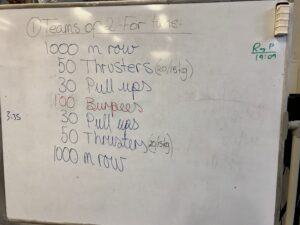 ① Teams of 2 For time:
1000 m row
50 Thrusters (20/15kg)
30 Pull ups
100 Burpees
30 Pull ups
50 Thrusters (20/15kg)
1000 m row
3:35
19:09